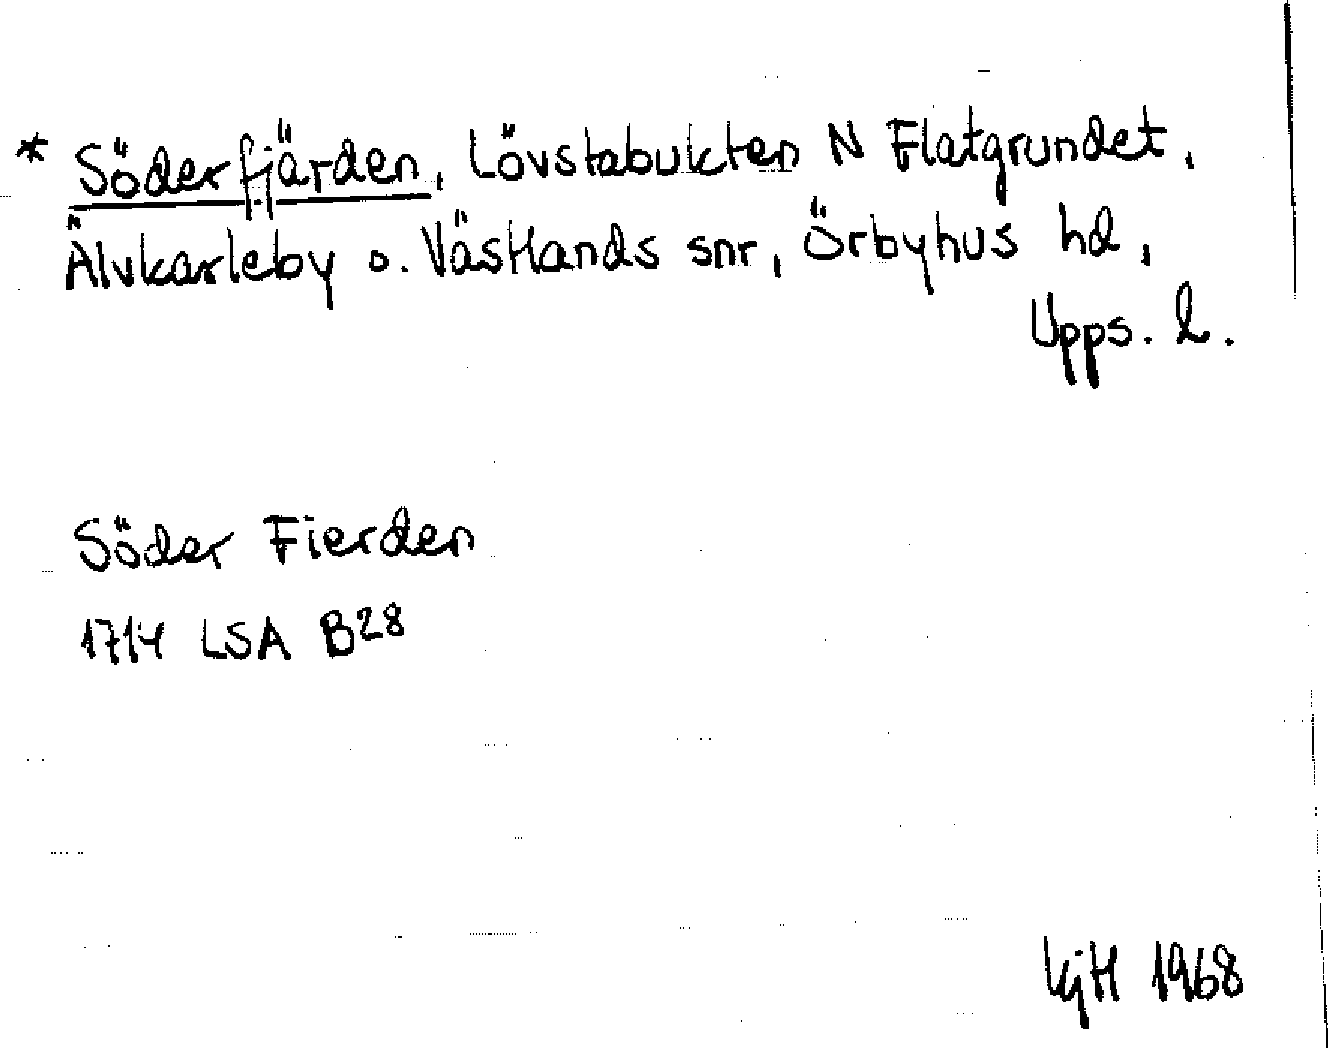 * Söderfjärden, Lövstabukten N Flatgrundet,
Älvkarleby o. Västlands snr, Örbyhus hd,
Upps. l.
Söder Fierden
1714 LSA B28
KjH 1968